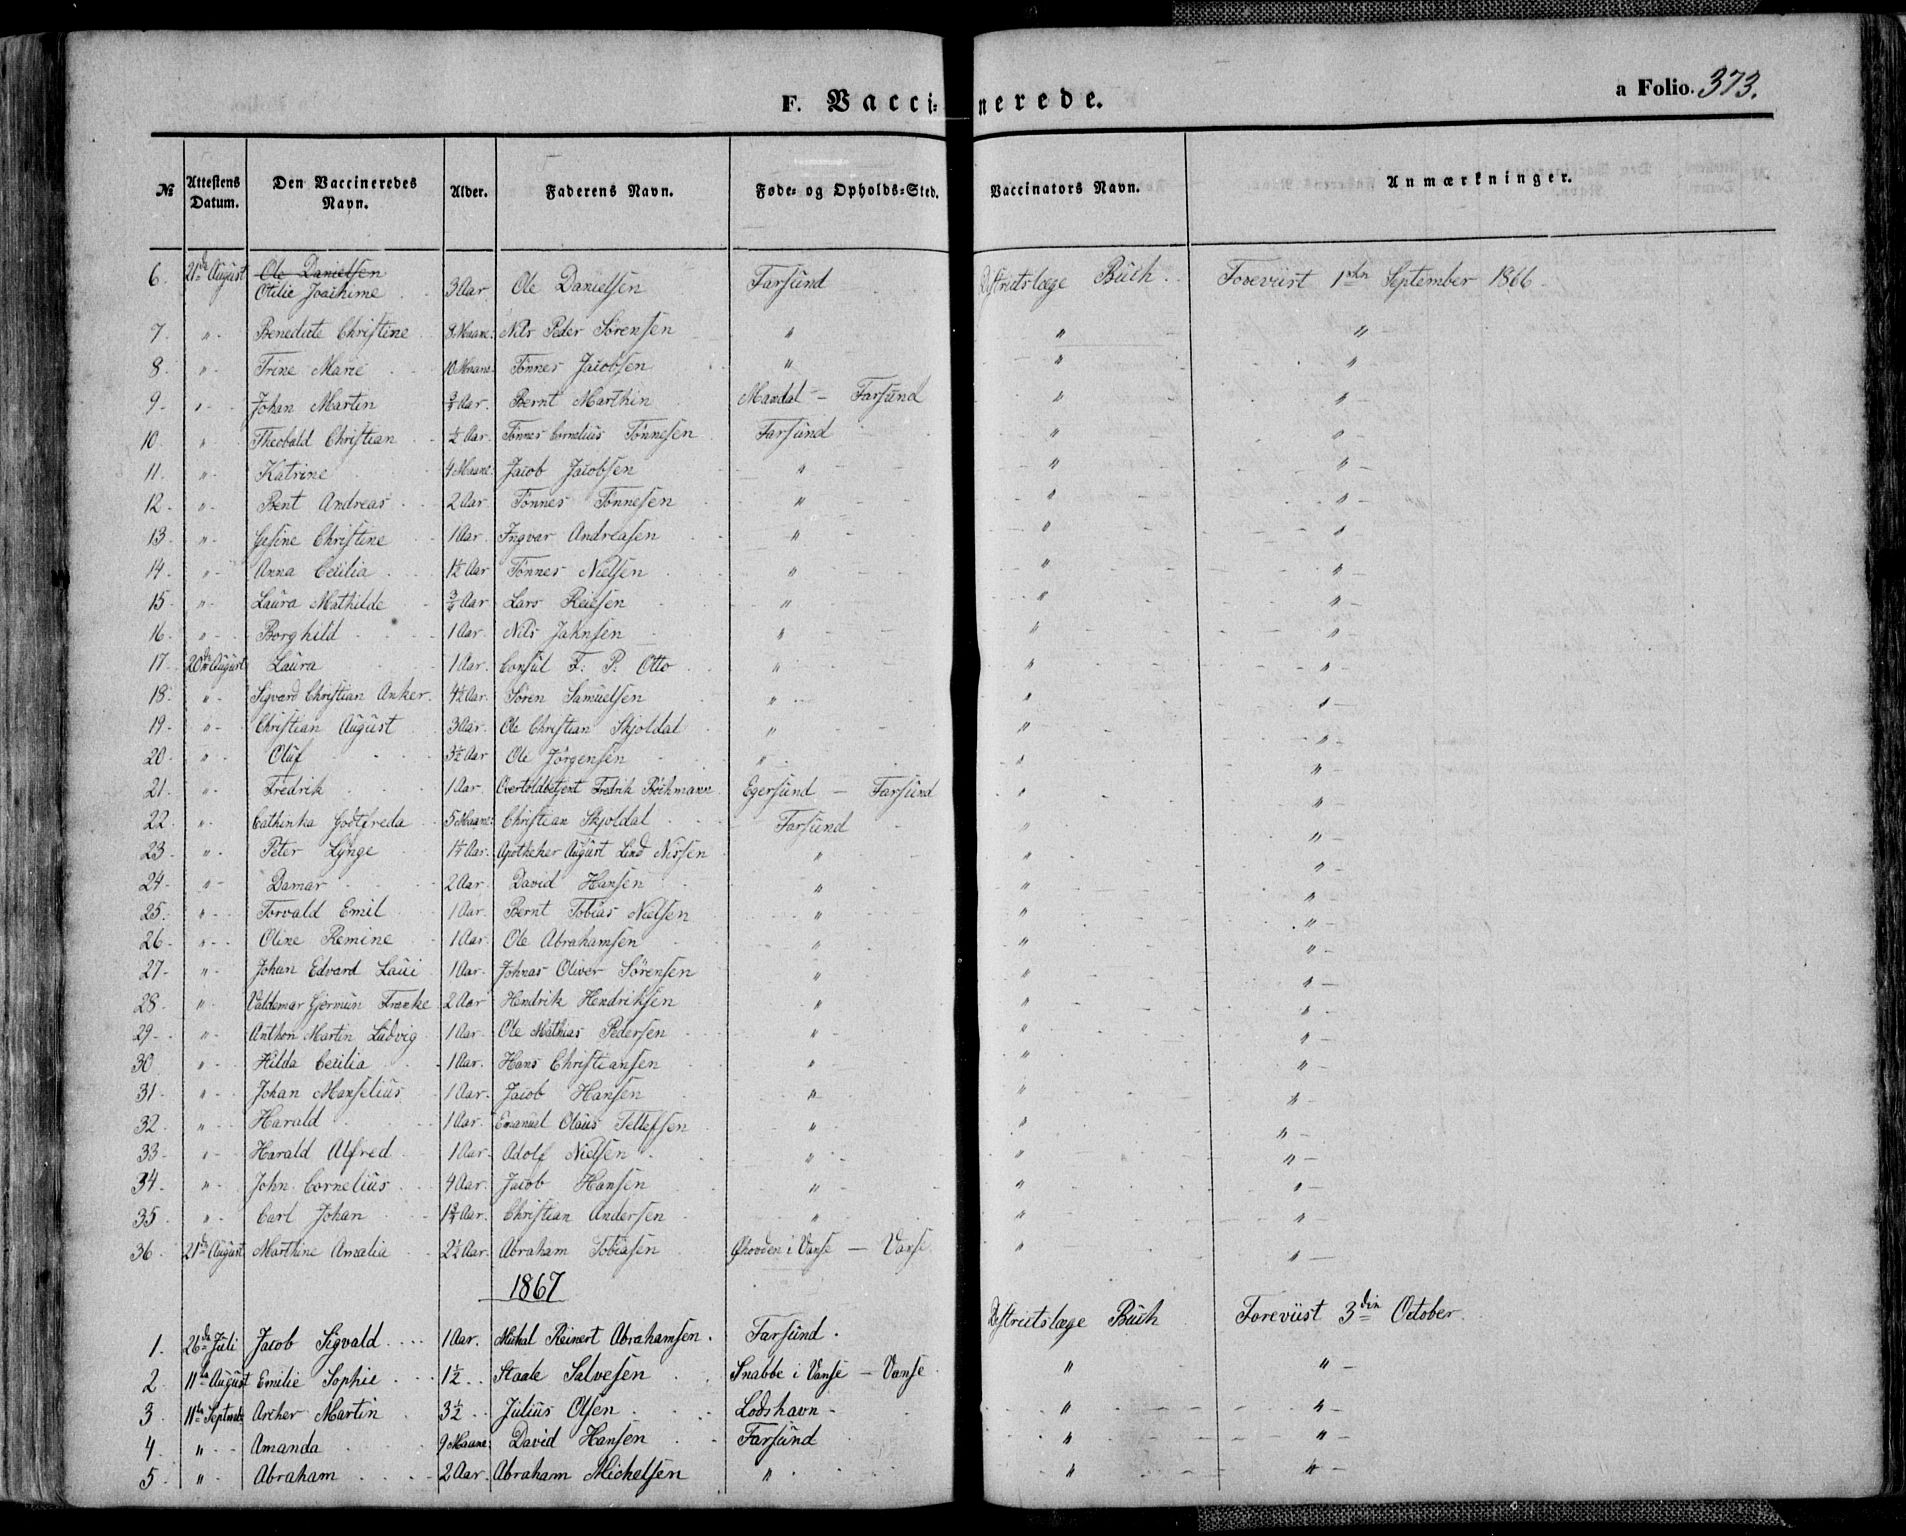 F. Vaccinerede. a Folio. 373.
No Attestens Datum. Den Vaccineredes Navn. Alder. Faderens Navn. Føde- og Opholds-Sted. Vaccinators Navn. Anmærkninger.
6 21de August Ole Danielsen
Otilie Joachime 3 Aar Ole Danielsen Farsund Distriktslæge Buch Foreviist 1ste September 1866
7 " Benedicte Christine 8 Maane: Nils Peder Sørensen " " "
8 " Trine Marie 10 Maane: Tønnes Jacobsen " " "
9 " Johan Martin 3/4 Aar. Bernt Marthin Mandal - Farsund " "
10 " Theobald Christian 1/2 Aar. Tønnes Cornelius Tønnesen Farsund " "
11 " Katrine 4 Maane: Jacob Jacobsen " " "
12 " Bent Andreas 2 Aar Tønnes Tønnesen " " "
13 " Gesine Christine 1 Aar. Ingvar Andreasen " " "
14 " Anna Cecilia 1 1/2 Aar Tønnes Nielsen " " "
15 " Laura Mathilde 3/4 Aar Lars Reiersen " " "
16 " Borghild 1 Aar. Nils Jahnsen " " "
17 20de August Laura 1 Aar. Consul F. P. Otto " " "
18 " Sigvard Christian Anker 4 1/2 Aar. Søren Samuelsen " " "
19 " Christian August 3 Aar. Ole Christian Skjoldal " " "
20 " Oluf 3 1/2 Aar Ole Jørgensen " " "
21 " Fredrik 1 Aar. Overtoldbetjent Fredrik Egersund - Farsund " "
22 " Cathinka Godtfreda 5 Maane: Christian Skjoldal Farsund " "
23 " Peter Lynge 1 1/4 Aar. Apotheker August Lind Nissen " " "
24 " Damar 2 Aar David Hansen " " "
25 " Torvald Emil 1 Aar. Bernt Tobias Nielsen " " "
26 " Oline Remine 1 Aar. Ole Abrahamsen " " "
27 " Johan Edvard Laui 1 Aar. Johnas Oliver Sørensen " " "
28 " Valdemar Franke 2 Aar Hendrik Hendriksen " " "
29 " Anthon Martin Ludvig 1 Aar. Ole Mathias Pedersen " " "
30 " Hilda Cecilia 1 Aar. Hans Christiansen " " "
31 " Johan Manselius 1 Aar. Jacob Hansen " " "
32 " Harald 1 Aar. Emanuel Olaus Tellefsen " " "
33 " Harald Alfred 1 Aar. Adolf Nielsen " " "
34 " John Cornelius 4 Aar. Jacob Hansen " " "
35 " Carl Johan 1 3/4 Aar. Christian Andersen " " "
36 21de August Marthine Amalia 2 1/2 Aar. Abraham Tobiasen i Vanse - Vanse " "
1867
1. 26de Juli Jacob Sigvald 1 Aar. Michal Reinert Abrahamsen. Farsund. Distriktslæge Buch Foreviist 3die October.
2 11te August Emilie Sophie 1 1/2 Staale Salvesen Snabbe i Vanse - Vanse " "
3 11te Septmbr Archer Martin 3 1/2 Julius Olsen Lodshavn " "
4 " Amanda 9 Maane: David Hansen Farsund " "
5 " Abraham 2 Aar. Abraham Michelsen " " "